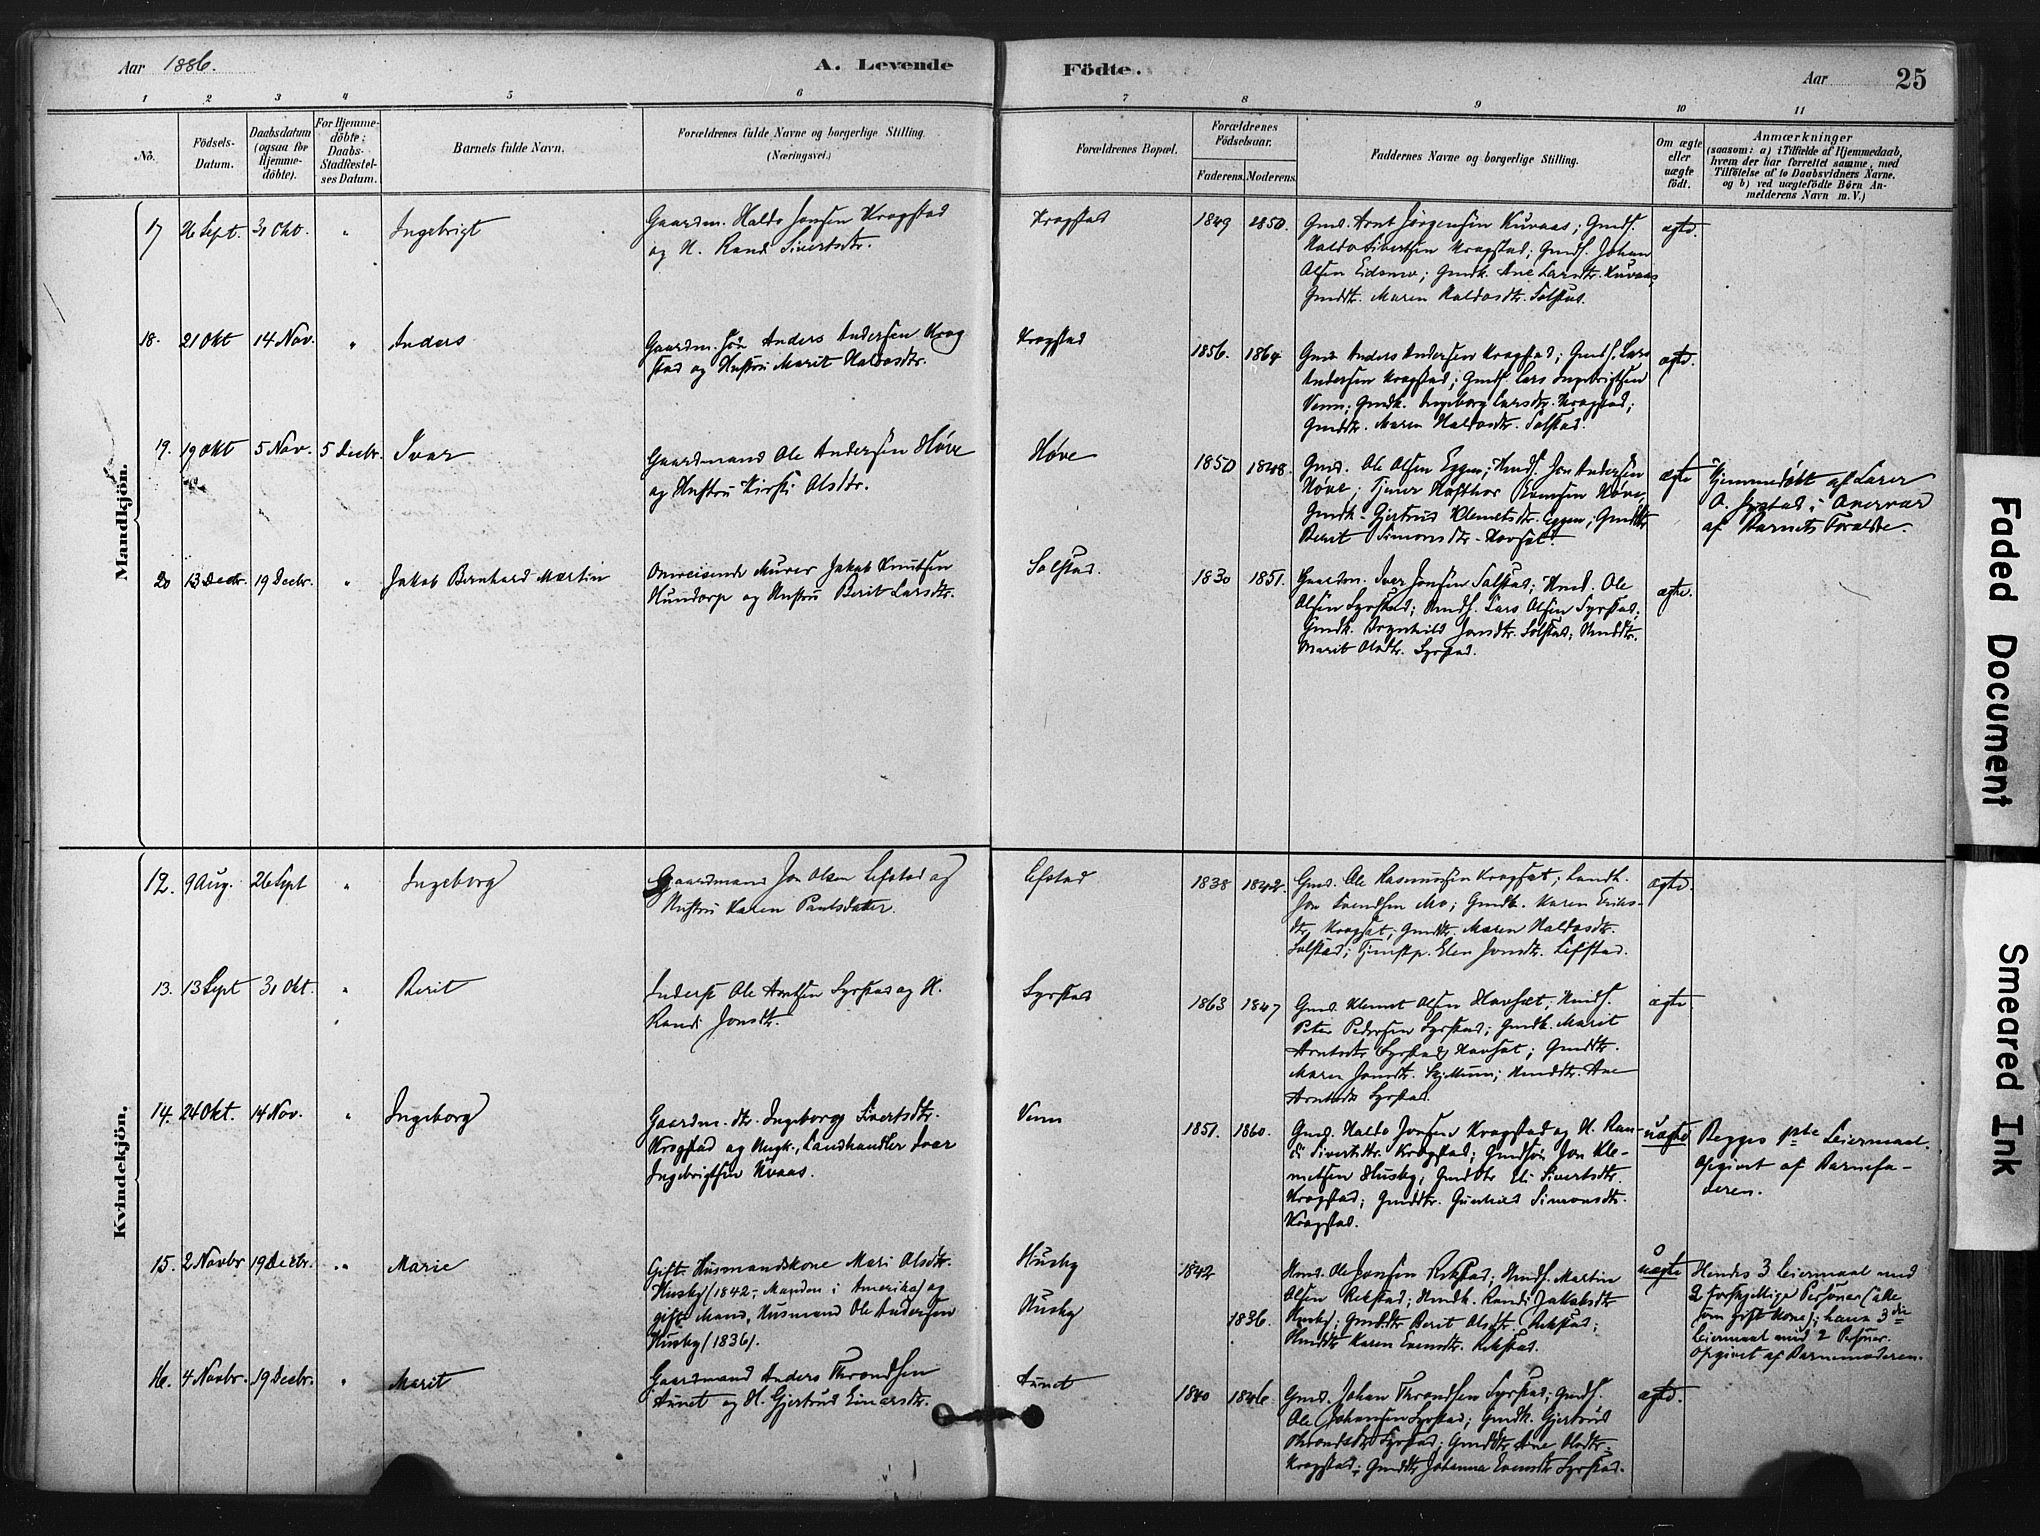 Aar 1886. A. Levende Födte. Aar 25
1 2 3 4 5 6 7 8 9 10 11
No.
Födsels-Datum.
Daabsdatum (ogsaa for Hjemme-döbte).
For Hjemme-döbte: Daabs-Stadfæstel-ses Datum.
Barnets fulde Navn.
Forældrenes fulde Navne og borgerlige Stilling.
(Næringsvei.)
Forældrenes Bopæl.
Forældrenes Födselsaar.
Faderens. Moderens.
Faddernes Navne og borgerlige Stilling.
Om ægte eller uægte födt.
Anmærkninger
(saasom: a) i Tilfælde af Hjemmedaab,
hvem der har forrettet samme, med
Tilföielse af to Daabsvidners Navne.
og b) ved uægtefödte Börn An-
melderens Navn m. V.)
Mandkjön.
17 26 Sept. 31 Okt. " Ingebrigt
Gaardm. Haldo Jonsen Krogstad
og H. Randi Sivertsdtr.
Krogstad
1849 1850.
Gmd. Arnt Jörgensen Kuvaas; Gmds.
Haldo Sivertsen Krogstad; Gmds. Johan
Olsen Eidsmo; Gmdk. Ane Larsdtr. Kuvaas
Gmddtr. Maren Haldosdtr. Solstad.
ægte.
18. 21 Okt 14 Nov. " Anders
Gaardm. Sön Anders Andersen Krog
stad og Hustru Marit Haldosdtr.
Krogstad
1856. 1864
Gmd. Anders Andersen Krogstad; Gmds. Lars
Andersen Krogstad; Gmds. Lars Ingebrigtsen
Venn; Gmdk. Ingeborg Larsdtr. Krogstad;
Gmddtr. Maren Haldosdtr. Solstad.
ægte.
19. 19 Okt 5 Nov. 5 Decbr. Ivar
Gaardmand Ole Andersen Høve
og Hustru Kirsti Olsdtr.
Høve
1850 1848.
Gmd. Ole Olsen Eggen; Gmds. Jon Andersen
Høve; Tjener Evensen Høve,
Gmdk. Gjertrud Klemetsdtr. Eggen; Gmddtr
Berit Simonsdtr. Hovsæt.
ægte
Hjemmedøbt af Lærer
O. Syrstad i Overvær
af Barnets Forældre.
20 13 Decbr. 19 Decbr. " Jakob Bernhard Martin
Omreisende Murer Jakob Knutsen
Hundorp og Hustru Berit Larsdtr.
Solstad.
1830 1851.
Gaardm. Iver Jonsen Solstad; Hmd. Ole
Olsen Syrstad; Hmds. Lars Olsen Syrstad;
Gmdk. Brynhild Jonsdtr. Solstad; Hmddtr.
Marit Olsdtr. Syrstad.
ægte.
Kvindekjön.
12. 9 Aug. 26 Sept " Ingeborg
Gaardmand Jon Olsen Lefstad og
Hustru Karen Paulsdatter.
Lefstad
1838 1842.
Gmd. Ole Rasmussen Krogsæt; Landh.
Jon Svendsen Mo; Gmdk. Karen Eriks-
dtr. Krogsæt; Gmddtr. Maren Haldosdtr.
Solstad; Tjenstp. Elen Jonsdtr. Lefstad.
ægte.
13. 13 Sept 31 Okt. " Berit
Inderst Ole Arntsen Syrstad og H.
Randi Jonsdtr.
Syrstad
1863 1847
Gmd. Klemet Olsen Hovsæt; Hmds.
Peter Pedersen Syrstad; Gmdk. Marit
Arntsdtr. Hovsæt; Gmddtr.
Maren Jonsdtr. Skjellum; Hmddtr. Ane
Arntsdtr Syrstad.
ægte
14. 24 Okt. 14 Nov. " Ingeborg
Gaardm. dtr. Ingeborg Sivertsdtr.
Krogstad og Ungk., Landhandler Ivar
Ingebrigtsen Kvaas.
Venn
1851. 1860.
Gmd. Haldo Jonsen Krogstad og H. Ran-
di Sivertsdtr. Krogstad; Gmdsön Jon Kle-
metsen Husby; Gmddtr Eli Sivertsdtr.
Krogstad; Gmddtr. Gunhild Simonsdtr.
Krogstad.
uægte
Begges 1ste Leiermaal.
Opgivet af Barnefa-
deren.
15. 2 Novbr 19 Decbr. " Marie
Gift Husmandskone Mari Olsdtr.
Husby (1842, Manden i Amerika) og
gift Mand, Husmand Ole Andersen
Husby (1836).
Husby
Husby
1842
1836.
Hmd. Ole Jonsen Rekstad; Hmds. Martin
Olsen Rekstad; Hmdk. Randi Jakobsdtr
Husby; Gmddtr Berit Olsdtr. Rekstad;
Hmddtr Karen Evensdtr. Rekstad.
uægte
Hendes 3 Leiermaal med
2 forskjellige Personer (alle
som gift Kone); hans 3die
Leiermaal med 2 Personer.
Opgivet af Barnemoderen.
16. 4 Novbr. 19 Decbr. " Marit
Gaardmand Anders Throndsen
Aunet og H. Gjertrud Einarsdtr.
Aunet
1840 1846
Gmd. Johan Throndsen Syrstad; Gmds.
Ole Johansen Syrstad; Gmdk. Gjertrud
Throndsdtr Syrstad; Gmddtr Ane Olsdtr.
Krogstad; Gmddtr Johanna Evensdtr Syrstad.
ægte.
Faded Document
Smeared Ink